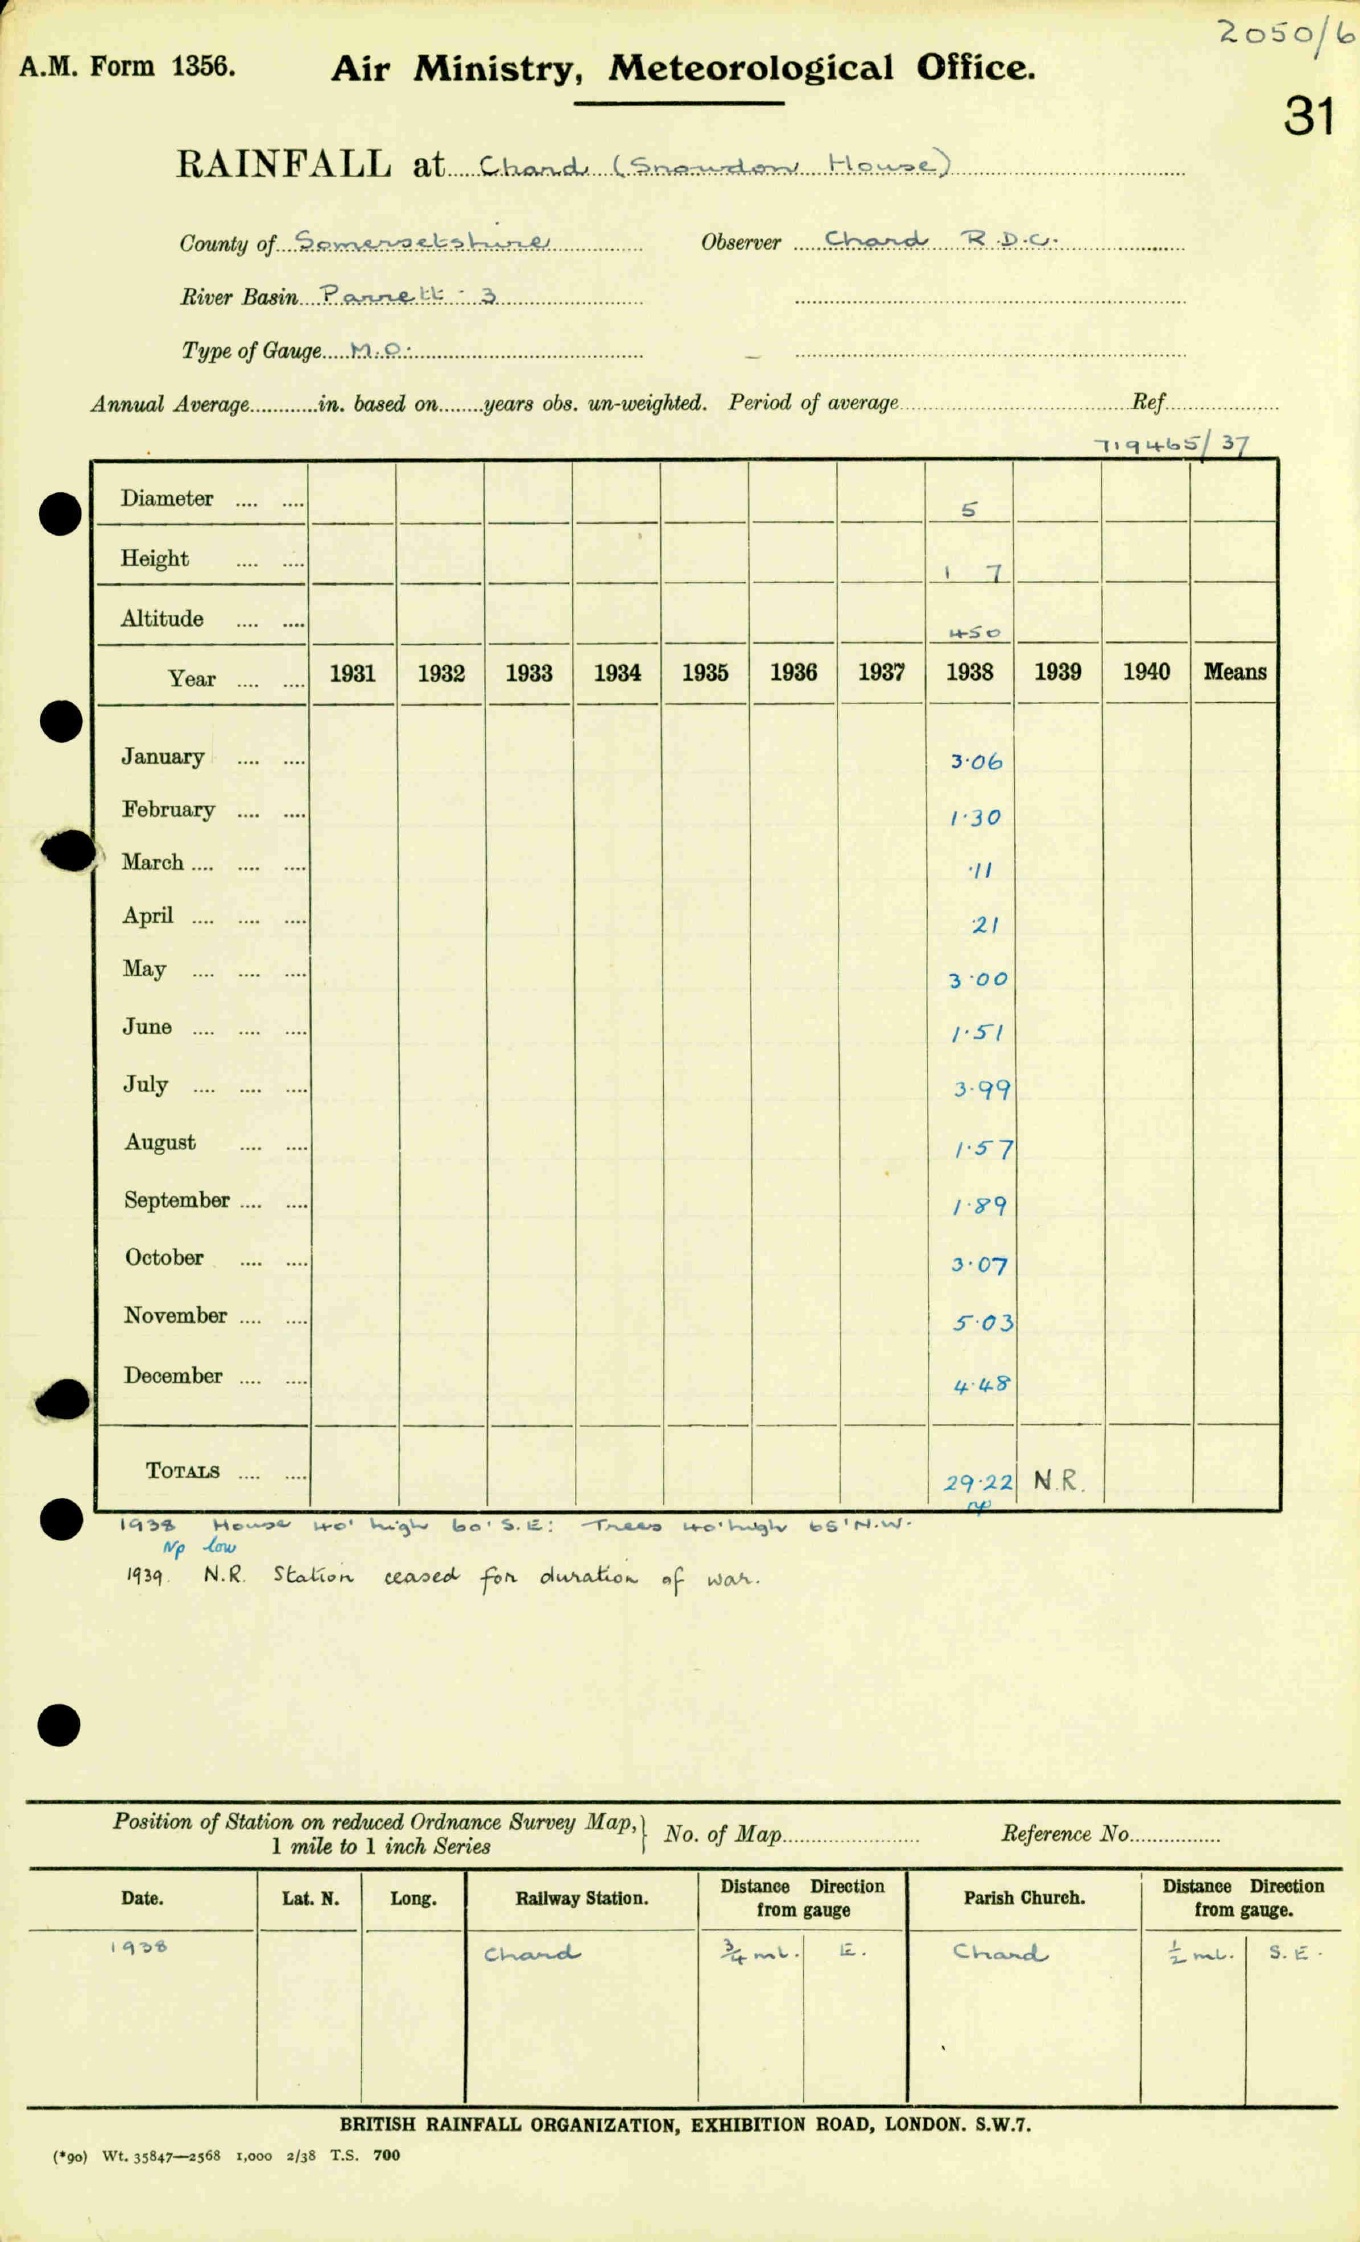 2050/6
A.M. Form 1356. Air Ministry, Meteorological Office.
31
RAINFALL at Chard (Snowdon House)
County of Somersetshire Observer Chard R.D.C.
River Basin Parrett - 3
Type of Gauge M.O.
Annual Average............in. based on........years obs. un-weighted. Period of average.......... Ref..........
719465/37
Diameter .... .... 5
Height .... .... 1 7
Altitude .... .... 450
Year .... .... 1931 1932 1933 1934 1935 1936 1937 1938 1939 1940 Means
January .... .... 3.06
February .... .... 1.30
March .... .... .... .11
April .... .... .... .21
May .... .... .... 3.00
June .... .... .... 1.51
July .... .... .... 3.99
August .... .... 1.57
September .... .... 1.89
October .... .... 3.07
November .... .... 5.03
December .... .... 4.48
TOTALS .... .... 29.22 N.R.
np
1938 House 40' high 60' S.E: Trees 40' high 65' N.W.
Np low
1939. N.R. Station ceased for duration of war.
Position of Station on reduced Ordnance Survey Map, 1 mile to 1 inch Series } No. of Map.......... Reference No..........
Date. Lat. N. Long. Railway Station. Distance Direction from gauge Parish Church. Distance Direction from gauge.
1938 Chard 3/4 ml. E. Chard 1/2 ml. S.E.
BRITISH RAINFALL ORGANIZATION, EXHIBITION ROAD, LONDON. S.W.7.
(*90) Wt. 35847—2568 1,000 2/38 T.S. 700